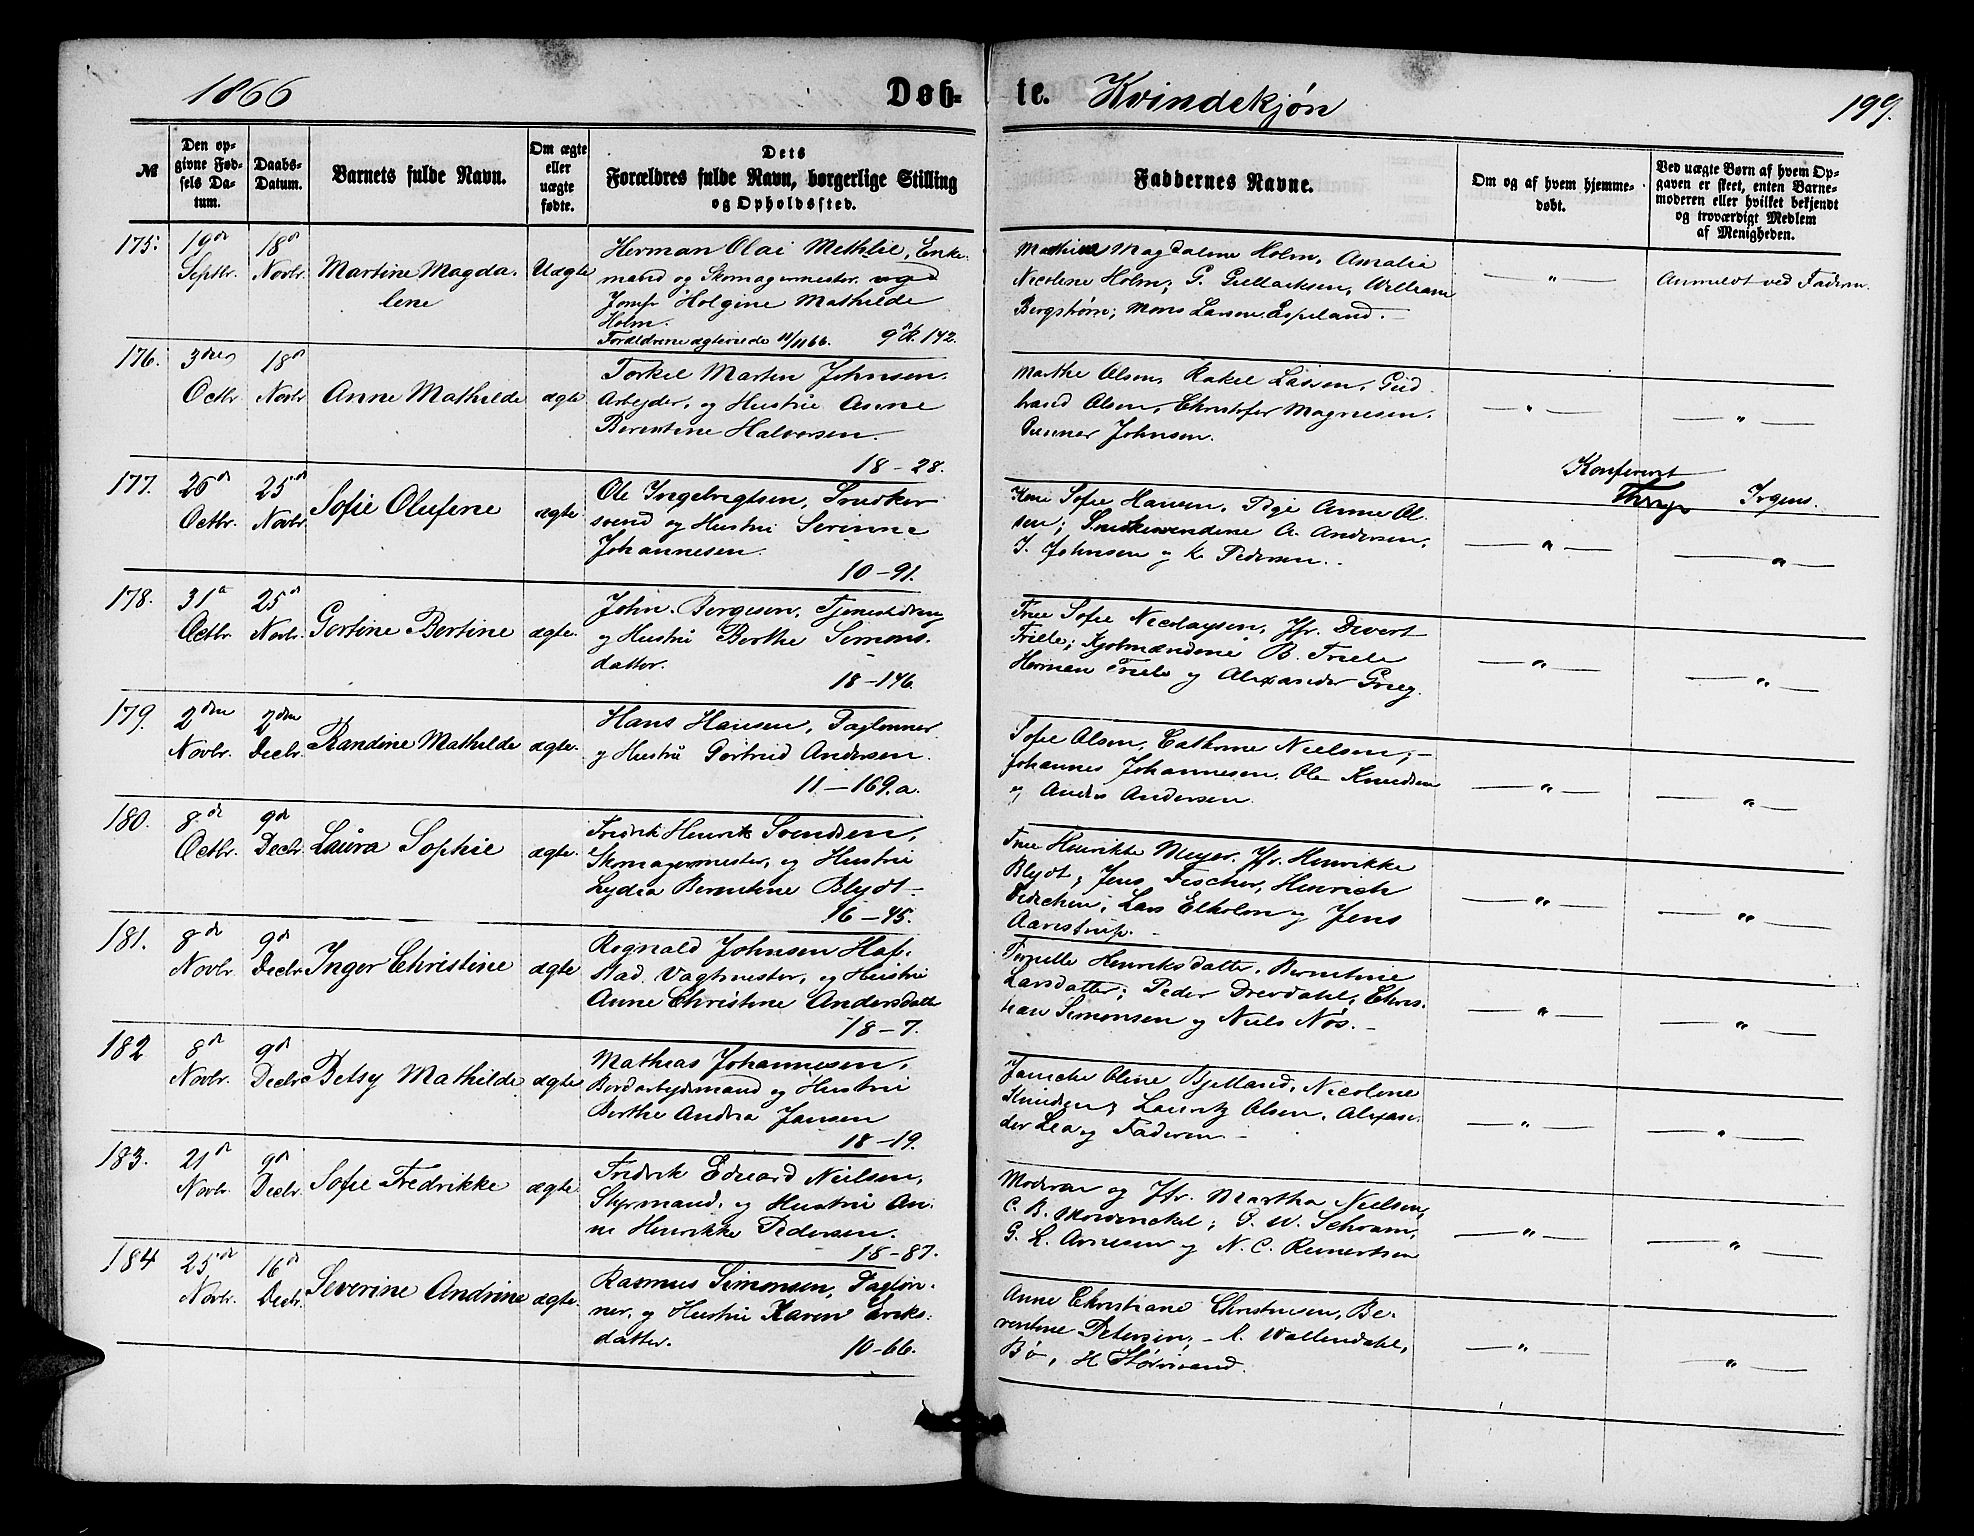 1866 Døb- te. Kvindekjøn 199.
№ Den opgivne Fødsels Datum. Daabs-Datum. Barnets fulde Navn. Om ægte eller uægte fødte. Dets Forældres fulde Navn, borgerlige Stilling og Opholdssted. Faddernes Navne. Om og af hvem hjemmedøbt. Ved uægte Børn af hvem Opgaven er skeet, enten Barnemoderen eller hvilket bekjendt og troværdigt Medlem af Menigheden.
175. 19de Septbr. 18de Novbr. Martine Magdalene Uægte
Herman Olai Methlie, Enkemand og Skomagermester og
Jomfr Holgine Mathilde
Holm.
Forældrene ægteviede 11/11 66. 9 k. 142.
Magdalene Holm, Amalia
Nicoline Holm; G. Gullacksen, William
Bergstrøm; Mons Larsen Espeland.
— " — Anmeldt ved Faderen.
176. 3die Octbr. 18de Novbr. Anne Mathilde ægte
Torkel Martin Johnsen.
Arbejder, og Hustru Anne
Berentine Halvorsen.
18-28.
Marthe Olsen, Rakel Larsen, Gudbrand Olsen, Christofer Magnesen.
Gunner Johnsen.
— " — — " —
Konfereret
Irgens.
177. 26de Octbr. 25de Novbr. Sofie Olufine ægte.
Ole Ingebrigtsen, Snedkersvend og Hustru Serinne
Johannesen.
10-91.
Kone Sofie Hansen, Pige Anne Olsen; Snedkersvendene A. Andersen,
J. Johnsen og K. Pedersen.
— " — — " —
178. 31te Octbr. 25de Novbr. Gertine Bertine ægte.
John Børgesen, Tjenestdreng
og Hustru Berthe Simonsdatter.
18-146.
Frue Sofie Nicolaysen, Jfr. Divert
Friele; Kjøbmændene B. Friele
Herman Friele og Alexander Grieg.
— " — — " —
179. 2den Novbr. 2den Decbr. Randine Mathilde ægte.
Hans Hansen, Daglønner
og Hustru Gertrud Andersen.
11-169.a.
Sofie Olsen, Cathrine Nielsen;
Johannes Johannesen, Ole Knudsen
og Andr. Andersen.
— " — — " —
180. 8de Octbr. 9de Decbr. Laura Sophie ægte.
Fredrik Henrik Svendsen,
Skomagermester, og Hustru
Lydia Berntine Blydt
16-45.
Frue Henrikke Meyer. Jfr. Henrikke
Blydt; Jens Fischer, Henrich
Didrichen; Lars Ekholm og Jens
Aarestrup.
— " — — " —
181. 8de Novbr. 9de Decbr. Inger Christine ægte
Regnald Johnsen Hafstad, Vagtmester, og Hustru
Anne Christine Andersdatter
18-7.
Pernille Henriksdatter, Berntine
Larsdatter; Peder Drevdahl, Christian Simonsen og Niels Nøs.
— " — — " —
182 8de Novbr. 9de Decbr. Betsy Mathilde ægte
Mathias Johannesen,
Bordarbejdsmand og Hustru
Berthe Andrea Jansen
18-19.
Janicke Oline Bjelland, Nicoline
Knudsen; Lauritz Olsen, Alexander Lea og Faderen
— " — — " —
183. 21de Novbr. 9de Decbr. Sofie Fredrikke ægte.
Fredrik Eduard Nielsen,
Styrmand, og Hustru Anne Henrikke Pedersen.
18-87.
Moderen og Jfr. Martha Nielsen,
C. B. Mowinckel; P. W. Schram,
G. L. Arnesen og N. C. Reinertsen
— " — — " —
184 25de Novbr. 16de Decbr. Severine Andrine ægte.
Rasmus Simonsen, Daglønner, og Hustru Karen Eriksdatter.
10-66.
Anne Christiane Christensen, Berentine Petersen; A. Wallendahl,
Bø, H Størviand.
— " — — " —